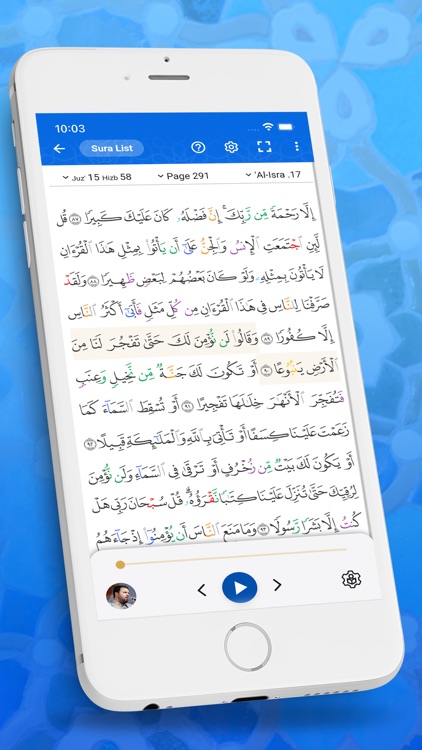 10:03
Sura List
Juz' 15 Hizb 58
Page 291
'Al-Isra .17
إِلَّا رَحْمَةً مِّن رَّبِّكَ ۚ إِنَّ فَضْلَهُۥ كَانَ عَلَيْكَ كَبِيرًا ۝٨٧ قُل
لَّئِنِ ٱجْتَمَعَتِ ٱلْإِنسُ وَٱلْجِنُّ عَلَىٰٓ أَن يَأْتُوا۟ بِمِثْلِ هَٰذَا ٱلْقُرْءَانِ
لَا يَأْتُونَ بِمِثْلِهِۦ وَلَوْ كَانَ بَعْضُهُمْ لِبَعْضٍ ظَهِيرًا ۝٨٨ وَلَقَدْ
صَرَّفْنَا لِلنَّاسِ فِى هَٰذَا ٱلْقُرْءَانِ مِن كُلِّ مَثَلٍ فَأَبَىٰٓ أَكْثَرُ ٱلنَّاسِ
إِلَّا كُفُورًا ۝٨٩ وَقَالُوا۟ لَن نُّؤْمِنَ لَكَ حَتَّىٰ تَفْجُرَ لَنَا مِنَ
ٱلْأَرْضِ يَنۢبُوعًا ۝٩٠ أَوْ تَكُونَ لَكَ جَنَّةٌ مِّن نَّخِيلٍ وَعِنَبٍ
فَتُفَجِّرَ ٱلْأَنْهَٰرَ خِلَٰلَهَا تَفْجِيرًا ۝٩١ أَوْ تُسْقِطَ ٱلسَّمَآءَ كَمَا
زَعَمْتَ عَلَيْنَا كِسَفًا أَوْ تَأْتِىَ بِٱللَّهِ وَٱلْمَلَٰٓئِكَةِ قَبِيلًا ۝٩٢
أَوْ يَكُونَ لَكَ بَيْتٌ مِّن زُخْرُفٍ أَوْ تَرْقَىٰ فِى ٱلسَّمَآءِ وَلَن نُّؤْمِنَ
لِرُقِيِّكَ حَتَّىٰ تُنَزِّلَ عَلَيْنَا كِتَٰبًا نَّقْرَؤُهُۥ ۗ قُلْ سُبْحَانَ رَبِّى هَلْ
كُنتُ إِلَّا بَشَرًا رَّسُولًا ۝٩٣ وَمَا مَنَعَ ٱلنَّاسَ أَن يُؤْمِنُوٓا۟ إِذْ جَآءَهُمُ